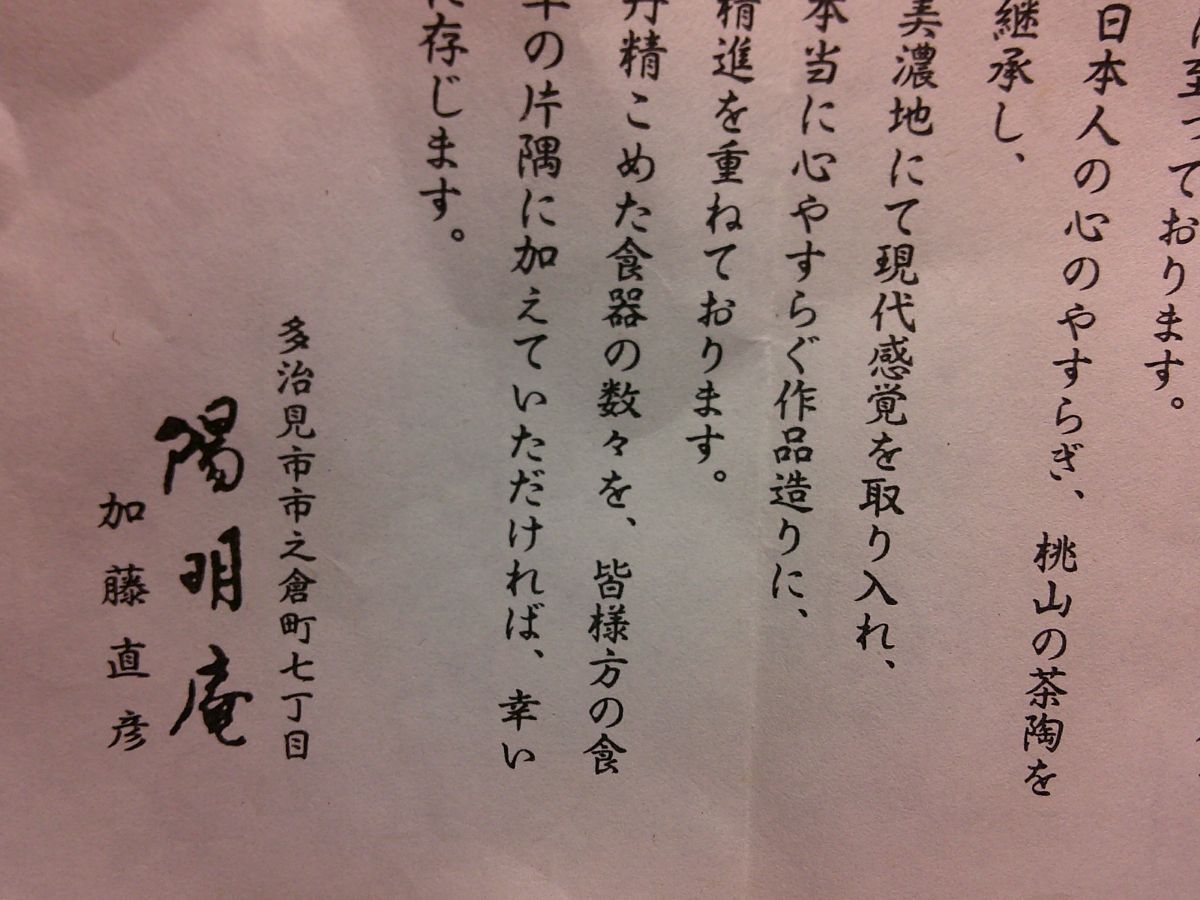 至っております。
日本人の心のやすらぎ、桃山の茶陶を
継承し、
美濃地にて現代感覚を取り入れ、
本当に心やすらぐ作品造りに、
精進を重ねております。
丹精こめた食器の数々を、皆様方の食
卓の片隅に加えていただければ、幸い
に存じます。
多治見市市之倉町七丁目
陽明庵
加藤直彦